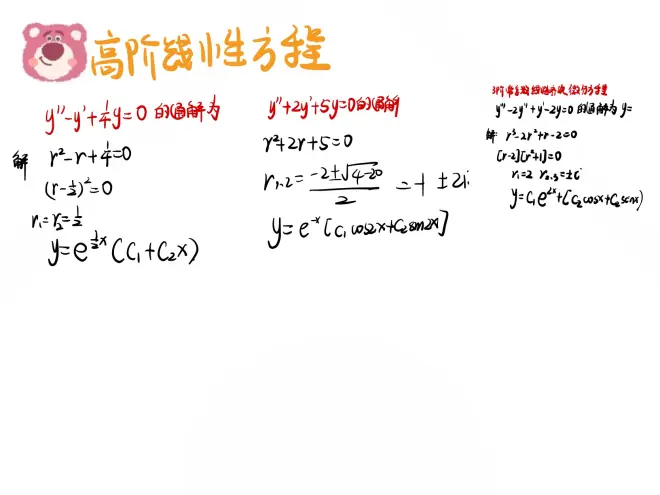 高阶线性方程
y''-y'+¼y=0 的通解为
解 r²-r+¼=0
(r-½)²=0
r₁=r₂=½
y=e^½x (C₁+C₂x)
y''+2y'+5y=0的通解
r²+2r+5=0
r₁,₂=(-2±√4-20)/2=-1±2i
y=e^-x[C₁cos2x+C₂sin2x]
3阶常系数线性齐次微分方程
y'''-2y''+y'-2y=0 的通解为 y=
解 r³-2r²+r-2=0
(r-2)(r²+1)=0
r₁=2 r₂,₃=±i
y=C₁e^2x+(C₂cosx+C₃sinx)